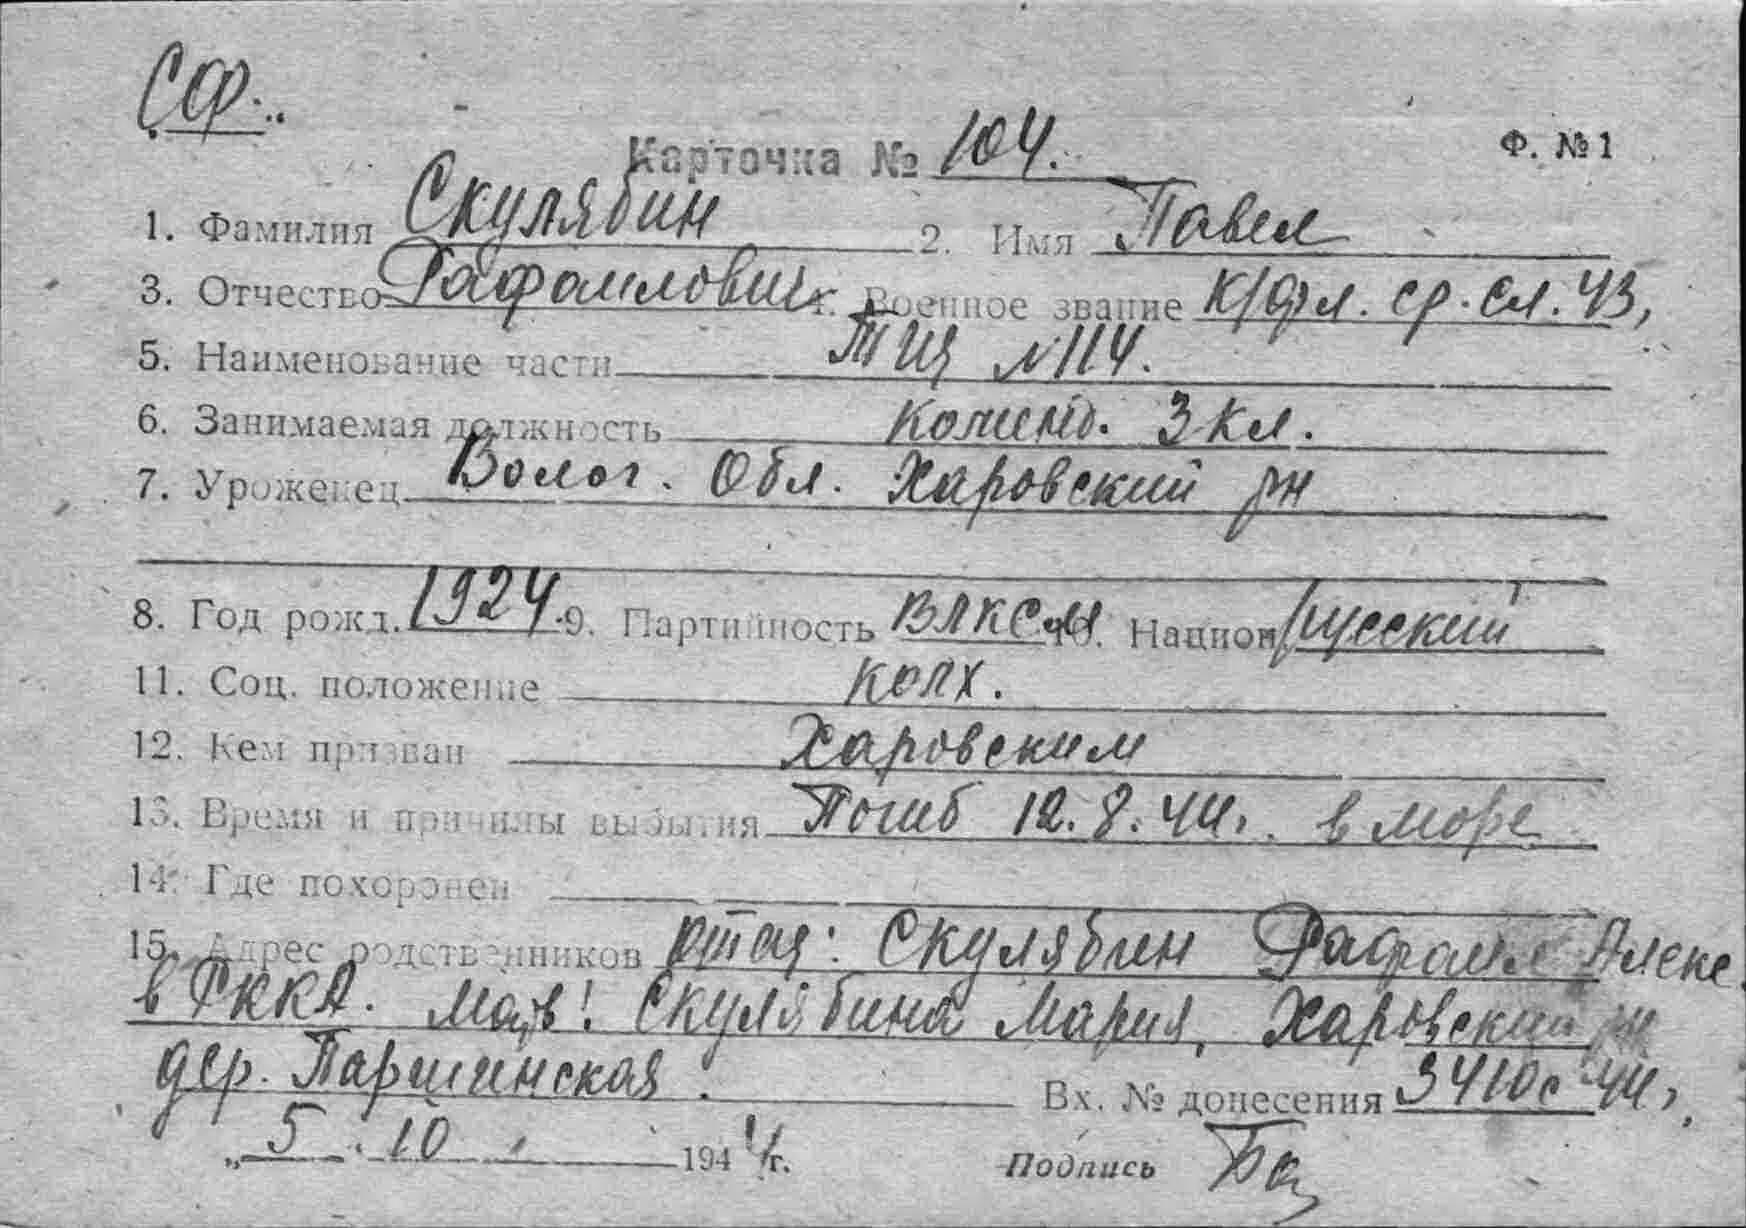 СФ.
Карточка № 104.
Ф. № 1
1. Фамилия Скулябин 2. Имя Павел
3. Отчество Рафаилович 4. Военное звание к/фл. ср. сл. 43,
5. Наименование части ТЩ №114.
6. Занимаемая должность Коменд. 3 кл.
7. Уроженец Волог. Обл. Харовский рн
8. Год рожд. 1924 9. Партийность ВЛКСМ 10. Национ русский
11. Соц. положение колх.
12. Кем призван Харовским
13. Время и причины выбытия Погиб 12.8.44г. в море
14. Где похоронен
15. Адрес родственников отец: Скулябин Рафаил Алекс.
в РККА. Мать: Скулябина Мария, Харовский рн
дер. Паршинская. Вх. № донесения 3410с 44г.
„5.10 1944г. Подпись